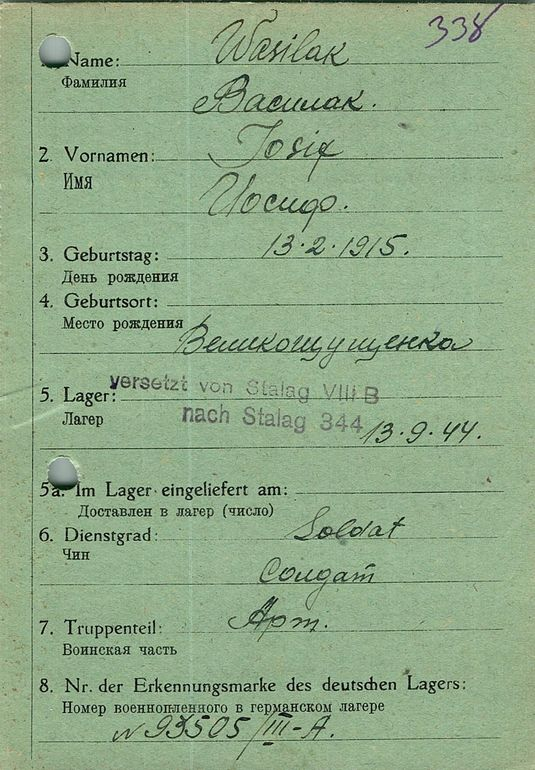 338
1. Name: Wasilak
Фамилия
Василак.
2. Vornamen: Iosif
Имя
Иосиф.
3. Geburtstag: 13.2.1915.
День рождения
4. Geburtsort:
Место рождения
Великощущенка
5. Lager: versetzt von Stalag VIII B
Лагер nach Stalag 344 13.9.44.
5a. Im Lager eingeliefert am:
Доставлен в лагер (число)
6. Dienstgrad: Soldat
Чин
Солдат
7. Truppenteil: Арт.
Воинская часть
8. Nr. der Erkennungsmarke des deutschen Lagers:
Номер военнопленного в германском лагере
№ 93505/III-A.